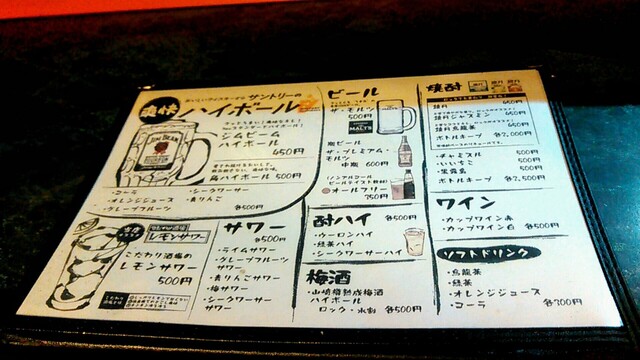 おいしいウイスキーなら サントリーの
爽快
ハイボール
JIM BEAM
ジムビーム
ハイボール
450円
角ハイボール 500円
・コーラ
・オレンジジュース
・グレープフルーツ
・シークワーサー
・青りんご
各500円
レモンサワー
こだわり酒場の
レモンサワー
500円
サワー
各500円
・ライムサワー
・グレープフルーツ
サワー
・青りんごサワー
・梅サワー
・シークワーサー
サワー
ビール
ザ・モルツ
500円
MALTS
瓶ビール
ザ・プレミアム・
モルツ
中瓶 600円
ノンアルコール
ビールテイスト飲料
オールフリー
350円
酎ハイ 各500円
・ウーロンハイ
・緑茶ハイ
・シークワーサーハイ
梅酒
・山崎焙煎樽熟成梅酒
ハイボール
ロック・水割 各500円
焼酎
鏡月
450円
鏡月ジャスミン 450円
鏡月烏龍茶 450円
ボトルキープ 各2,000円
・チャミスル 500円
・いいちこ 500円
・黒霧島 500円
ボトルキープ 各2,500円
ワイン
・カップワイン赤
・カップワイン白 各500円
ソフトドリンク
・烏龍茶
・緑茶
・オレンジジュース
・コーラ 各300円